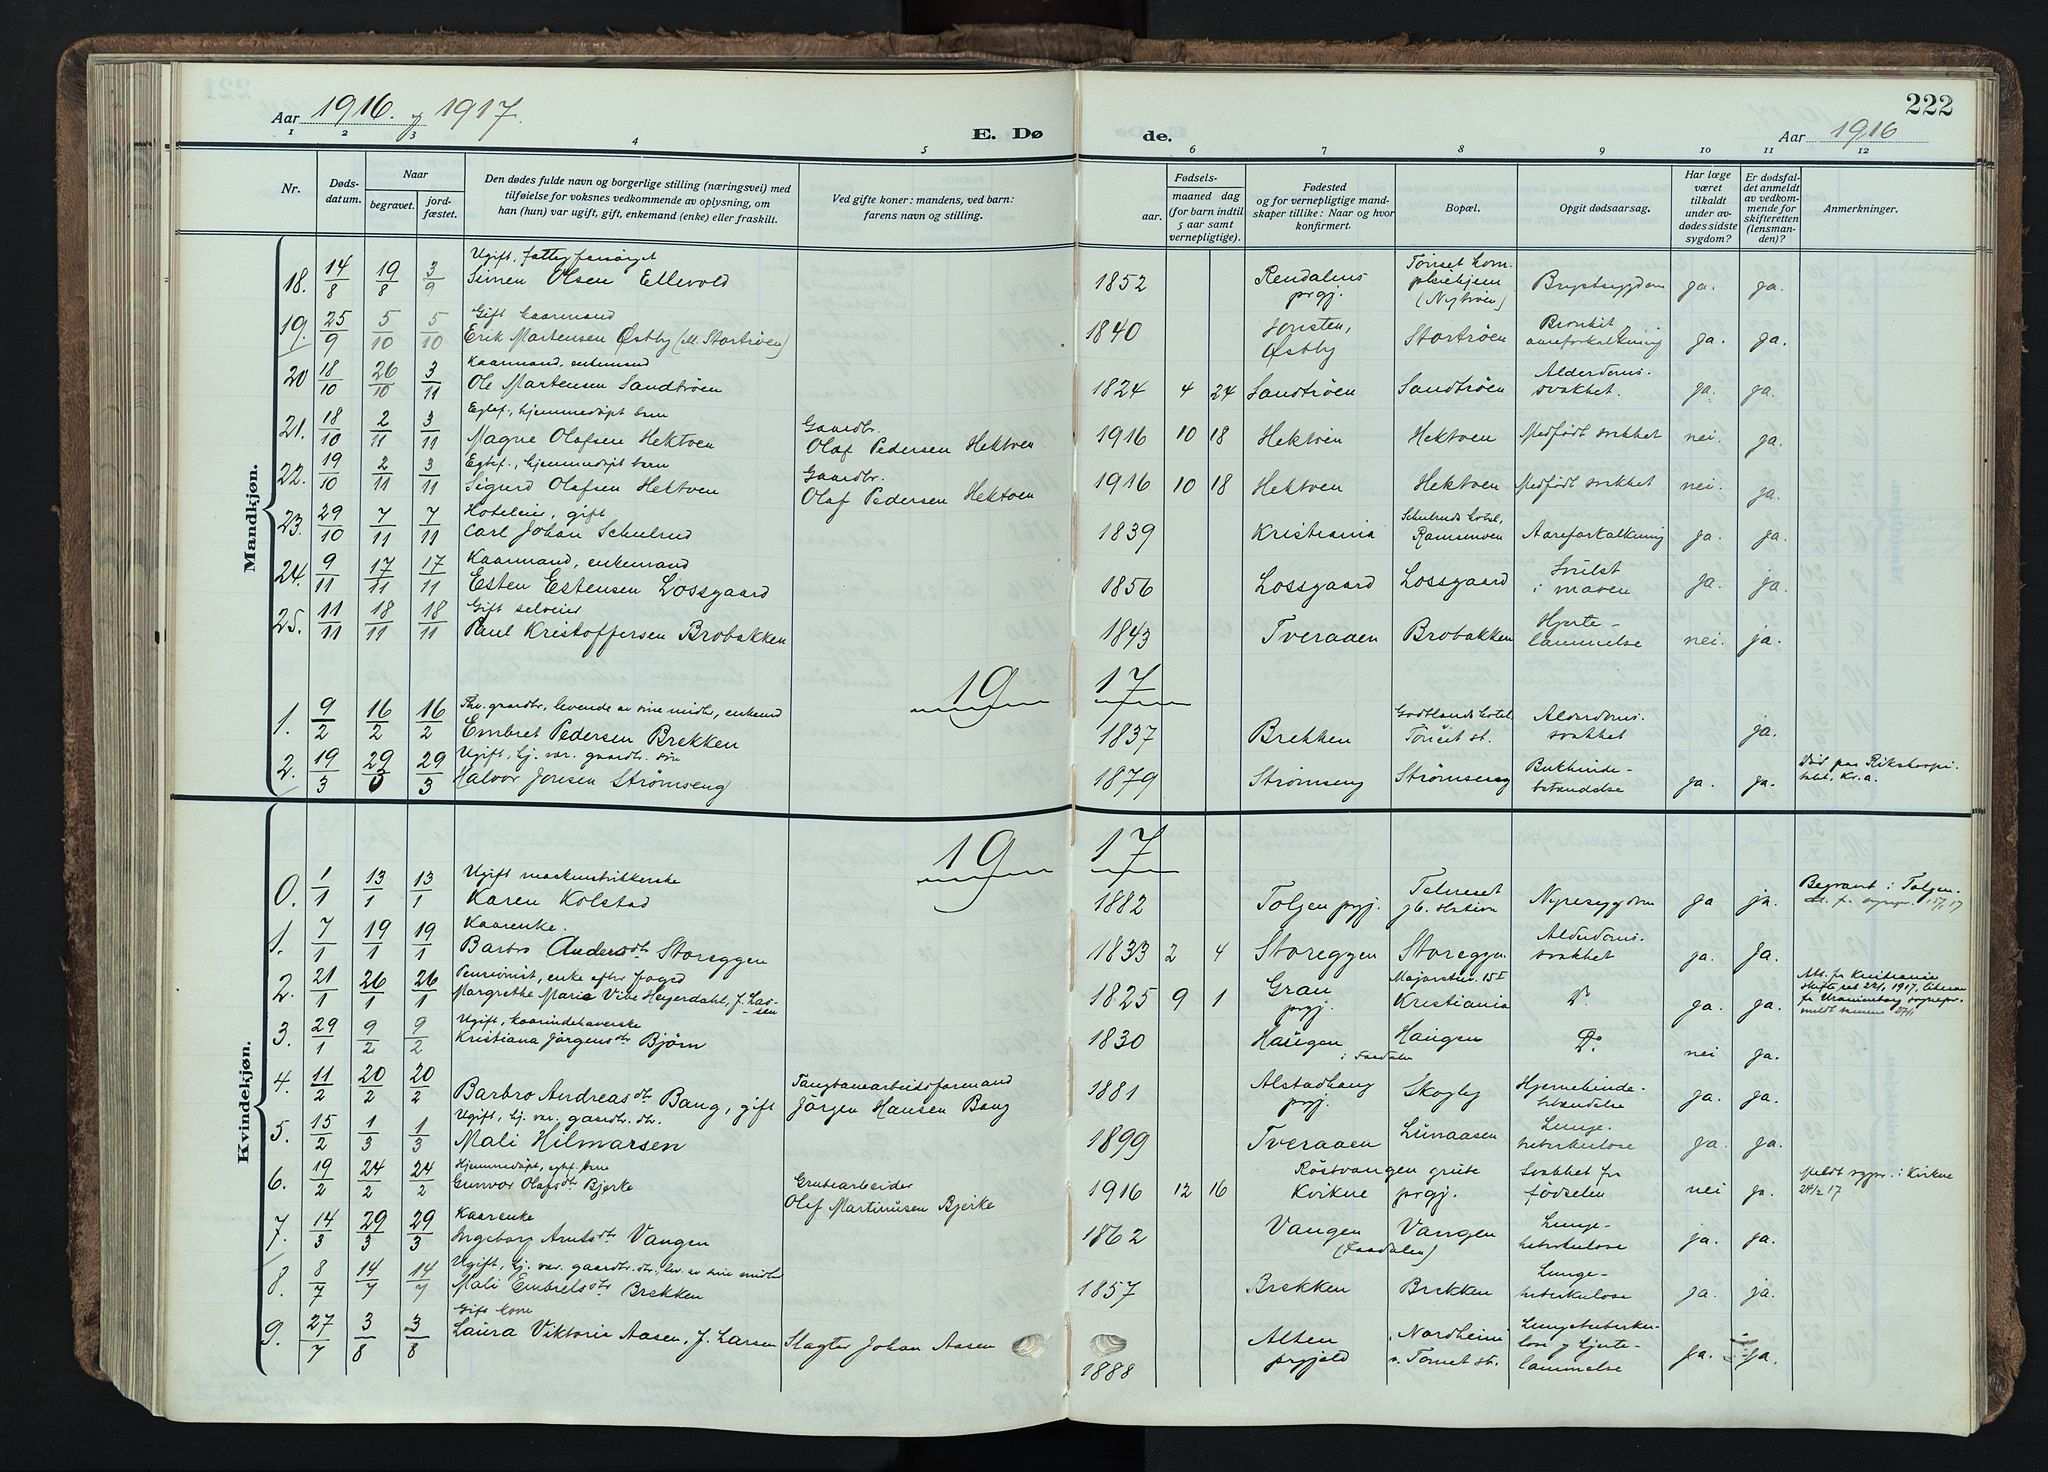 222
Aar 1916 og 1917.
E. Dø
de.
Aar 1916
1 2 3 4 5 6 7 8 9 10 11 12
Nr.
Døds-
datum.
Naar
begravet.
jord-
fæstet.
Den dødes fulde navn og borgerlige stilling (næringsvei) med
tilføielse for voksnes vedkommende av oplysning, om
han (hun) var ugift, gift, enkemand (enke) eller fraskilt.
Ved gifte koner: mandens, ved barn:
farens navn og stilling.
Fødsels-
aar.
maaned dag
(for barn indtil
5 aar samt
vernepligtige).
Fødested
og for vernepligtige mand-
skaper tillike: Naar og hvor
konfirmert.
Bopæl.
Opgit dødsaarsag.
Har læge
været
tilkaldt
under av-
dødes sidste
sygdom?
Er dødsfal-
det anmeldt
av vedkom-
mende for
skifteretten
(lensman-
den)?
Anmerkninger.
Mandkjøn.
Ugift, fattigforsørget
18. 14/8 19/8 3/9 Simen Olsen Ellevold 1852 Rendalens prgj. Tønset kom. pleiehjem (Nytrøen) Brystsygdom ja. ja.
Gift kaarmand
19. 25/9 5/10 5/10 Erik Martensen Østby (ell. Stortrøen) 1840 Østby Stortrøen Bronkit aareforkalkning ja. ja.
Kaarmand, enkemand
20 18/10 26/10 3/11 Ole Martensen Sandtrøen 1824 4 24 Sandtrøen Sandtrøen Alderdoms- svakhet. ja. ja.
Egtef., hjemmedøpt barn Gaardbr.
21. 18/10 2/11 3/11 Magne Olafsen Hektoen Olaf Pedersen Hektoen 1916 10 18 Hektoen Hektoen Medfødt svakhet nei. ja.
Egtef., hjemmedøpt barn Gaardbr.
22. 19/10 2/11 3/11 Sigurd Olafsen Hektoen Olaf Pedersen Hektoen 1916 10 18 Hektoen Hektoen Medfødt svakhet nei. ja.
Hoteleier, gift
23. 29/10 7/11 7/11 Carl Johan Schulrud 1839 Kristiania Schulruds hotel, Ramsmoen Aareforkalkning ja. ja.
Kaarmand, enkemand
24. 9/11 17/11 17/11 Esten Estensen Lossgaard 1856 Lossgaard Lossgaard Svulst i maven ja. ja.
Gift selveier
25. 11/11 18/11 18/11 Paul Kristoffersen Brobakken 1843 Tveraaen Brobakken Hjerte- lammelse nei. ja.
19 17
Fhv. gaardbr., levende av sine midler, enkemd
1. 9/2 16/2 16/2 Embret Pedersen Brekken 1837 Brekken Godtlands hotel Tønset st. Alderdoms- svakhet ja.
Ugift, hj. vær. gaardbr. søn
2. 19/3 29/3 29/3 Halvor Jonsen Strømseng 1879 Strømseng Strømseng Bukhinde- betændelse ja. ja. Død paa Rikshospi- talet, Kr.a.
Kvindekjøn.
19 17
Ugift maskinstrikkerske
0. 1/1 13/1 13/1 Karen Kolstad 1882 Tolgen prgj. Telneset jb. station Nyresygdom ja ja. Begravet i Tolgen.
Kaarenke.
1. 7/1 19/1 19/1 Barbro Andersdtr Storeggen 1833 2 4 Storeggen Storeggen Alderdoms- svakhet ja. ja.
Pensionist, enke efter foged
2. 21/1 26/1 26/1 Margrethe Marie Vibe Heyerdahl, f. Las- sen 1825 9 1 Gran prgj. Majorstuv. 15 I Kristiania Do. ja. ja.
Ugift, kaarindehaverske
3. 29/1 9/2 9/2 Kristiana Jörgensdtr Bjørn 1830 Haugen i Faadalen Haugen Do. nei ja.
4. 11/2 20/2 20/2 Barbro Andreasdtr Bang, gift Taugbanearbeidsformand Jörgen Hansen Bang 1881 Alstadhaug prgj. Skogly Hjernehinde- betændelse ja. ja.
Ugift, hj. vær. gaardbr. dtr.
5. 15/2 1/3 1/3 Mali Hilmarsen 1899 Tveraaen Lunaasen Lunge- tuberkulose ja. ja.
Hjemmedøpt, egtef. barn
6. 19/2 24/2 24/2 Gunvor Olafsdtr Bjerke Grubearbeider Olaf Martinusen Bjerke 1916 12 16 Röstvangen grube Kvikne prgj. Svakhet fra fødselen nei ja. Meldt sogepr. i Kvikne 24/2 17
Kaarenke
7. 14/3 29/3 29/3 Ingeborg Arntsdtr Vangen 1862 Vangen Vangen (Faadalen) Lunge- tuberkulose ja. ja.
Ugift, hj. vær. gaardbr. dtr., lev. av sine midler
8. 8/7 14/7 14/7 Mali Embretsdtr Brekken 1857 Brekken Brekken Lunge- tuberkulose ja. ja.
Gift kone
9. 27/7 3/8 3/8 Laura Viktoria Aasen, f. Larsen Slagter Johan Aasen 1888 Alten prgjeld Nordheim v. Tønset st. Lungetuberku- lose og hjerte- lammelse ja. ja.